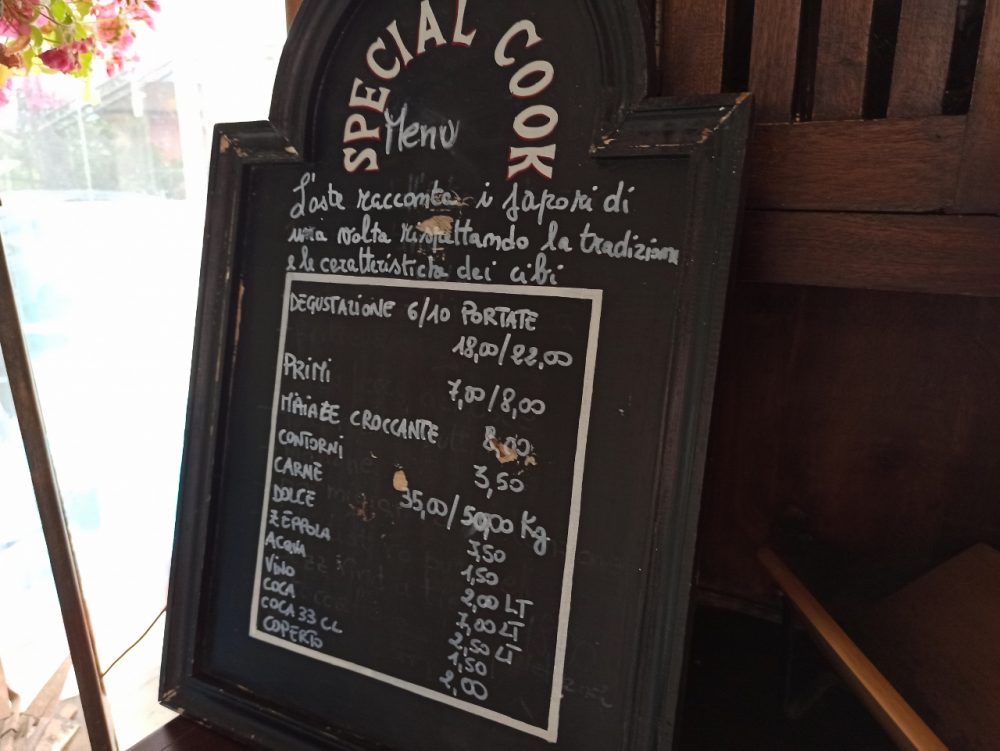 SPECIAL COOK
Menù
L'oste racconta i sapori di
una volta rispettando la tradizione
e le ceratteristicta dei cibi
DEGUSTAZIONE 6/10 PORTATE
18,00/22,00
PRIMI 7,00/8,00
MAIALE CROCCANTE 8,00
CONTORNI 3,50
CARNE 35,00/50,00 Kg
DOLCE 3,50
ZEPPOLA 1,50
ACQUA 2,00 LT
VINO 7,00 LT
COCA 2,50 LT
COCA 33 CL 1,50
COPERTO 2,00